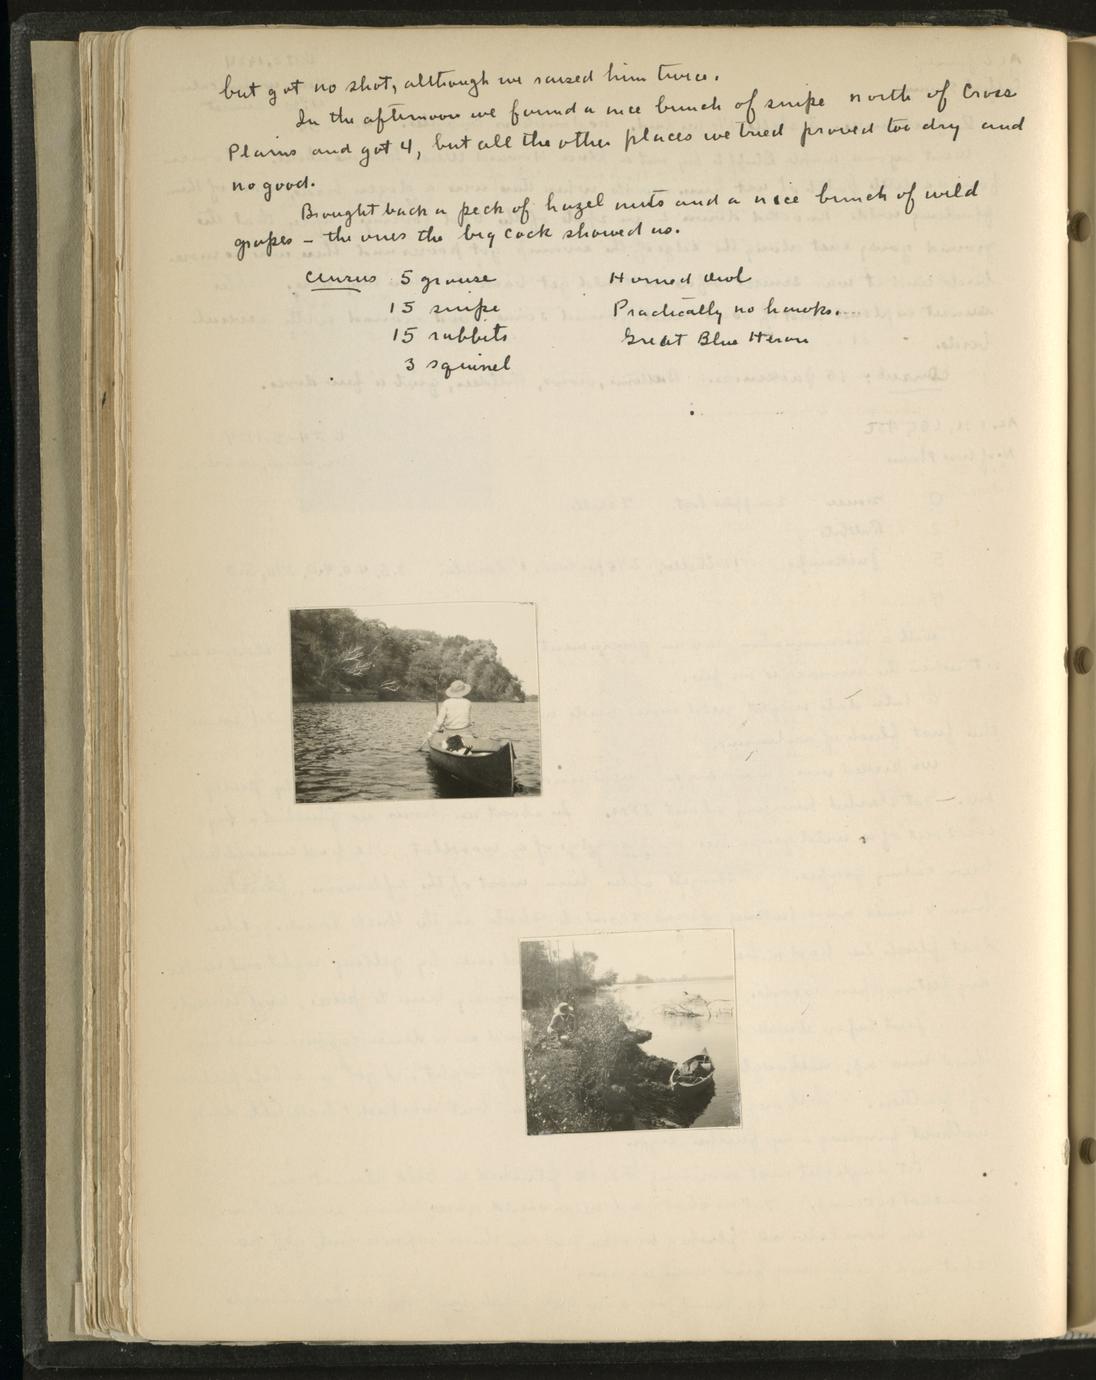 but got no shot, although we raised him twice.
In the afternoon we found a nice bunch of snipe north of Cross
Plains and got 4, but all the other places we tried proved too dry and
no good.
Brought back a peck of hazel nuts and a nice bunch of wild
grapes – the ones the big cock showed us.
Census 5 grouse Horned Owl
15 snipe Practically no hawks....
15 rabbits Great Blue Heron
3 squirrel